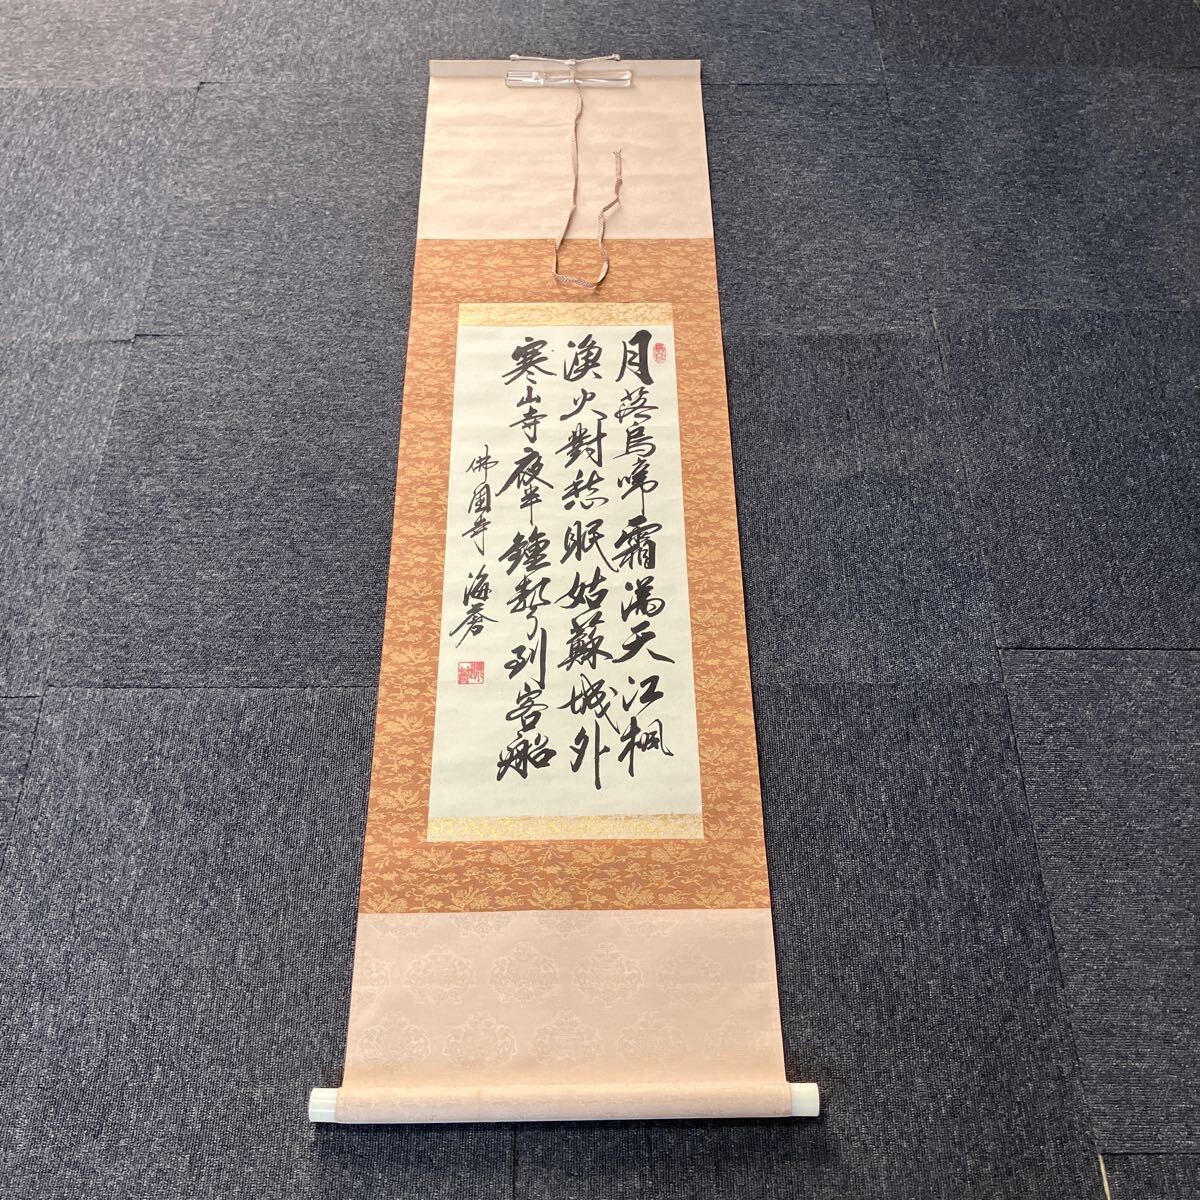 月落烏啼霜満天江楓
漁火對愁眠姑蘇城外
寒山寺夜半鐘聲到客船
佛国寺 海